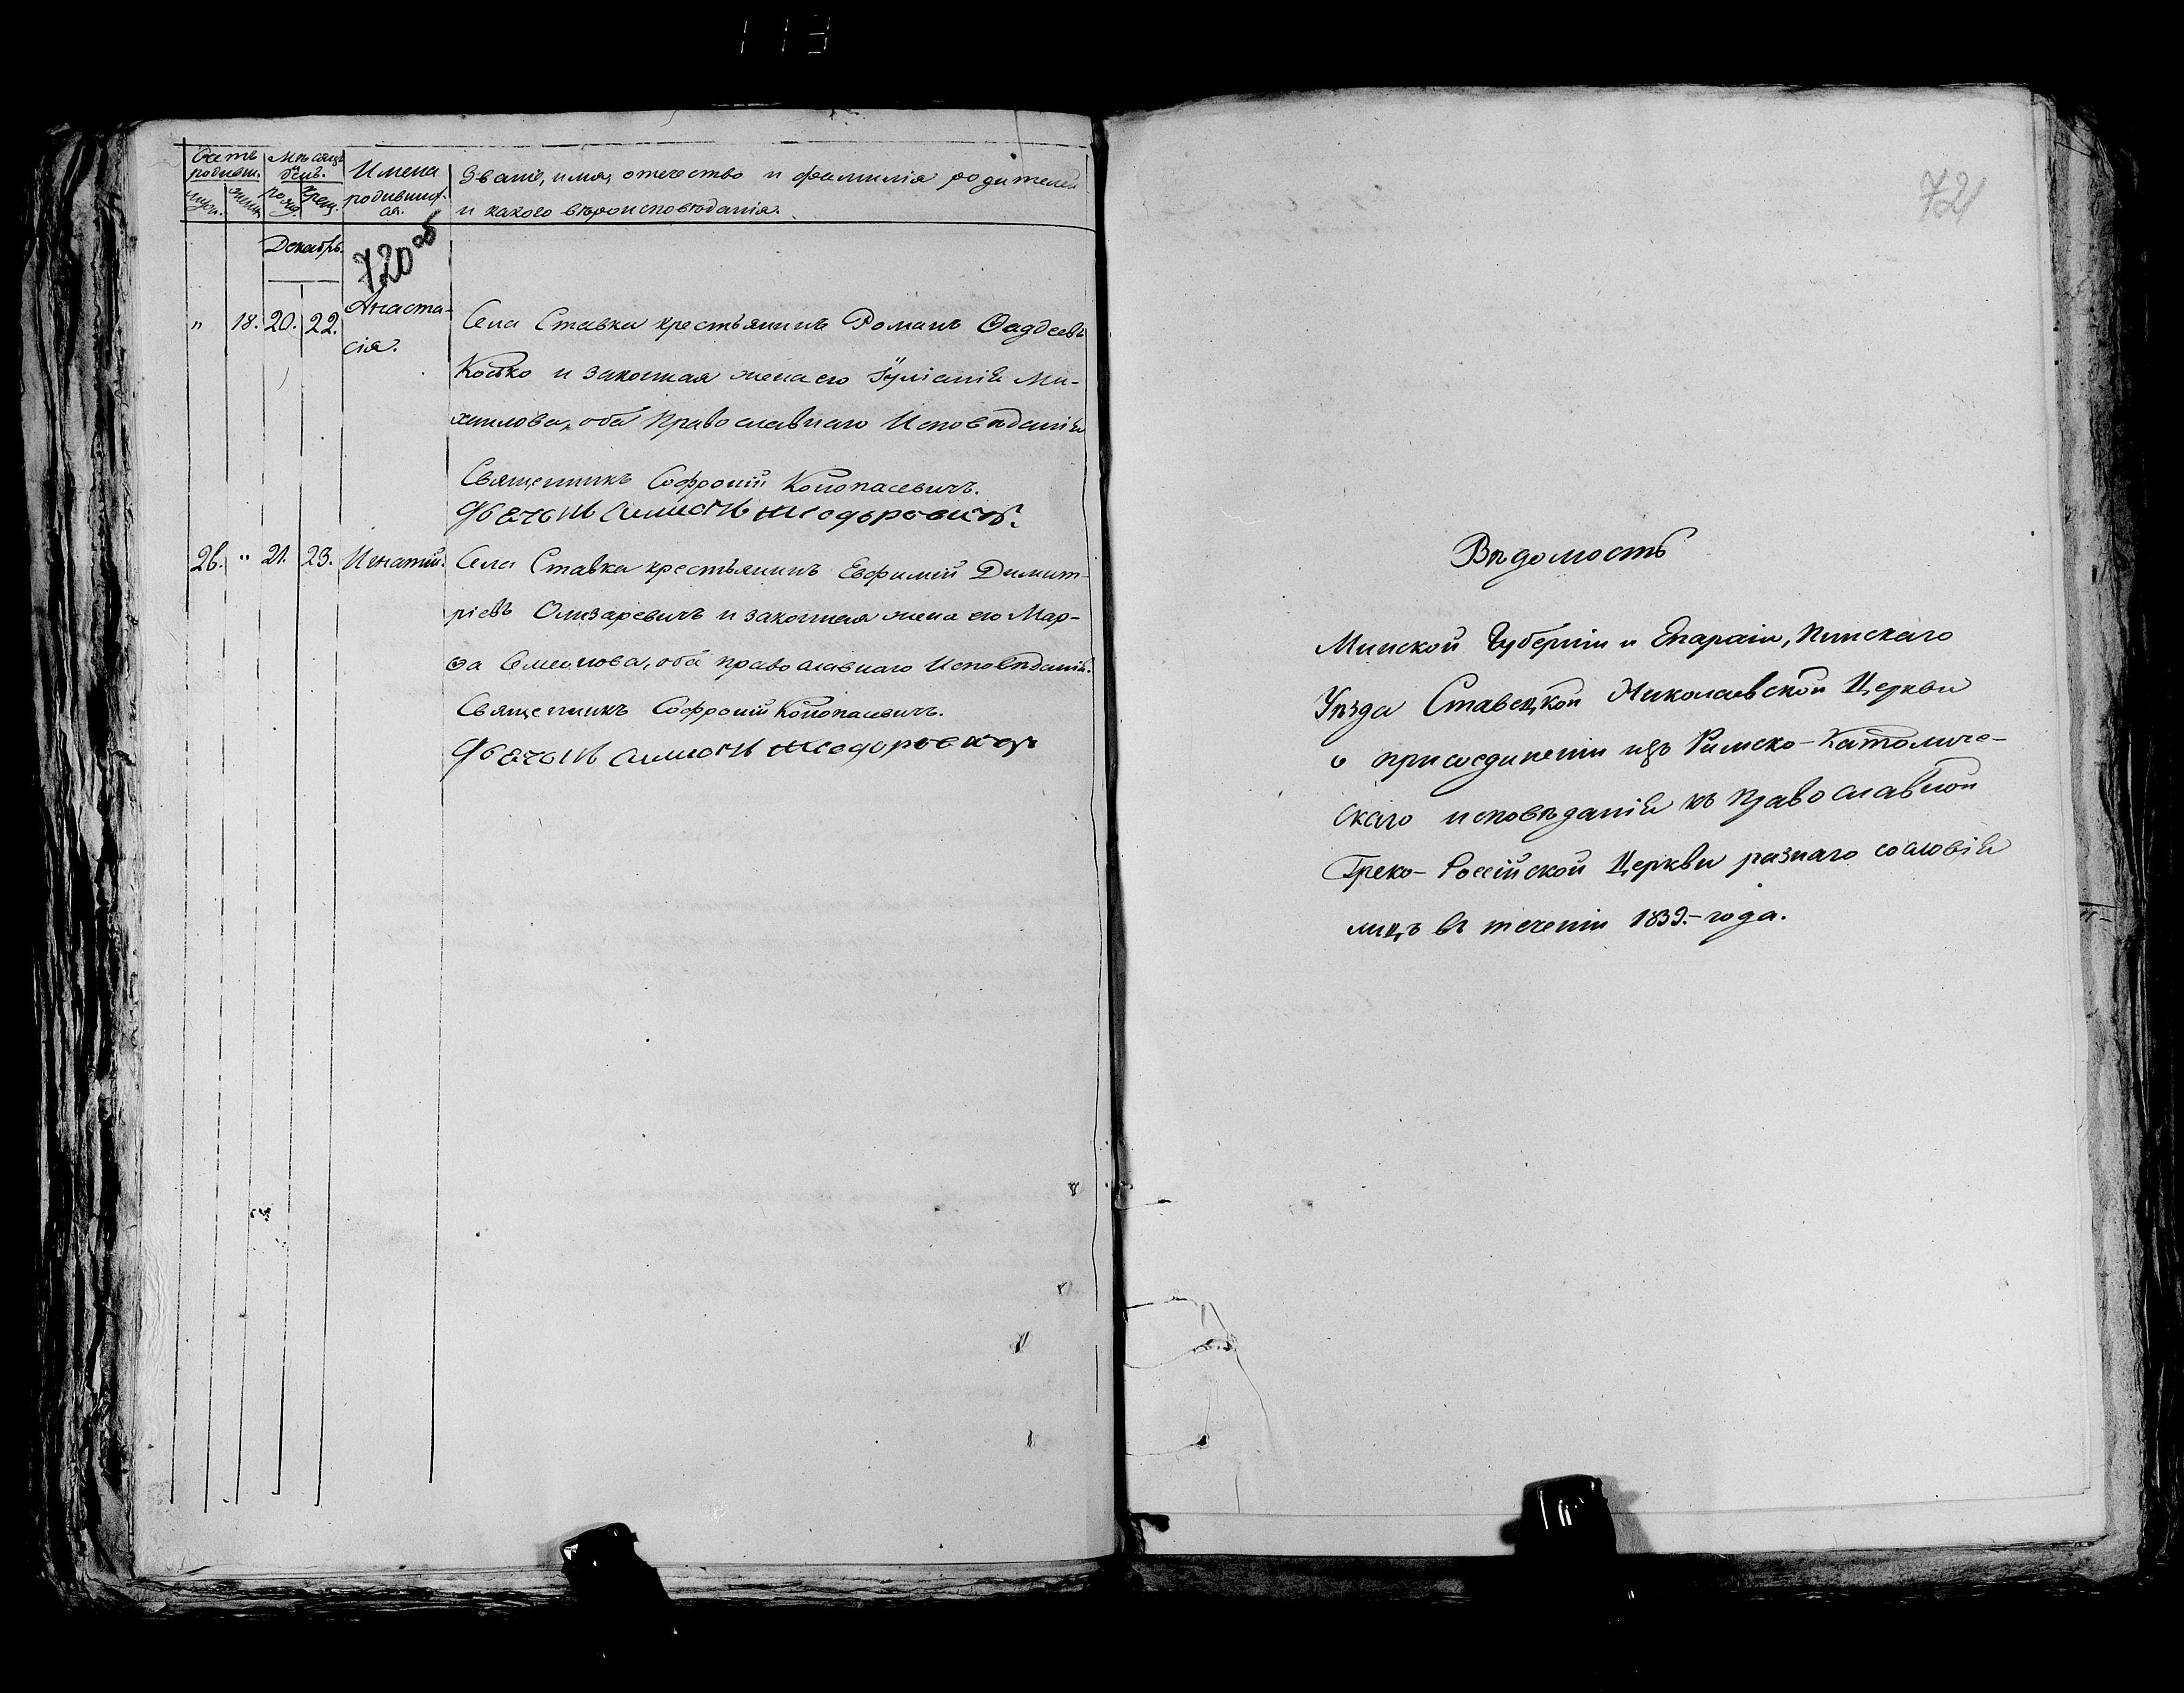 113
Счетъ родивш. Мѣсяцъ день. Имена родившихся. Званіе, имя, отечество и фамилія родителей
муж. женск. рожд. крещ. и какого вѣроисповѣданія.
Декабрь.
720об
" 18. 20. 22. Анаста- Села Ставка крестьянинъ Романъ Ѳаддеевъ
сія. Костко и законная жена его Іуліанія Ми-
хаилова, оба Православнаго Исповѣданія
Священникъ Софроній Конопасевичъ.
26. " 21. 23. Игнатій. Села Ставка крестьянинъ Евфимій Димит-
ріевъ Олизаревичъ и законная жена его Мар-
ѳа Семенова, оба православнаго Исповѣданія.
Священникъ Софроній Конопасевичъ.
721
Вѣдомость
Минской Губерніи и Епархіи, Пинскаго
Уѣзда Ставецкой Николаевской Церкви
о присоединеніи изъ Римско-Католиче-
скаго исповѣданія къ Православной
Греко-Россійской Церкви разнаго сословія
лицъ въ теченіи 1839.-года.